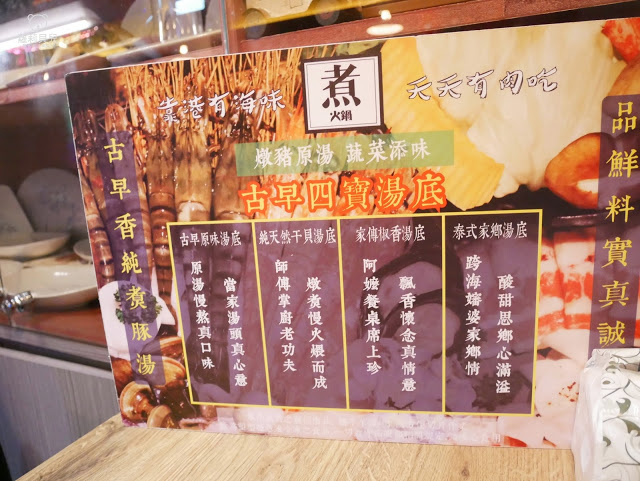 靠港有海味
煮
火鍋
天天有肉吃
燉豬原湯 蔬菜添味
古早四寶湯底
古早香純煮豚湯
品鮮料實真誠
古早原味湯底
當家湯頭真心意
原湯慢熬真口味
純天然干貝湯底
燉煮慢火煨而成
師傅掌廚老功夫
家傳椒香湯底
飄香懷念真情意
阿嬤餐桌席上珍
泰式家鄉湯底
酸甜思鄉心滿溢
跨海嬸婆家鄉情